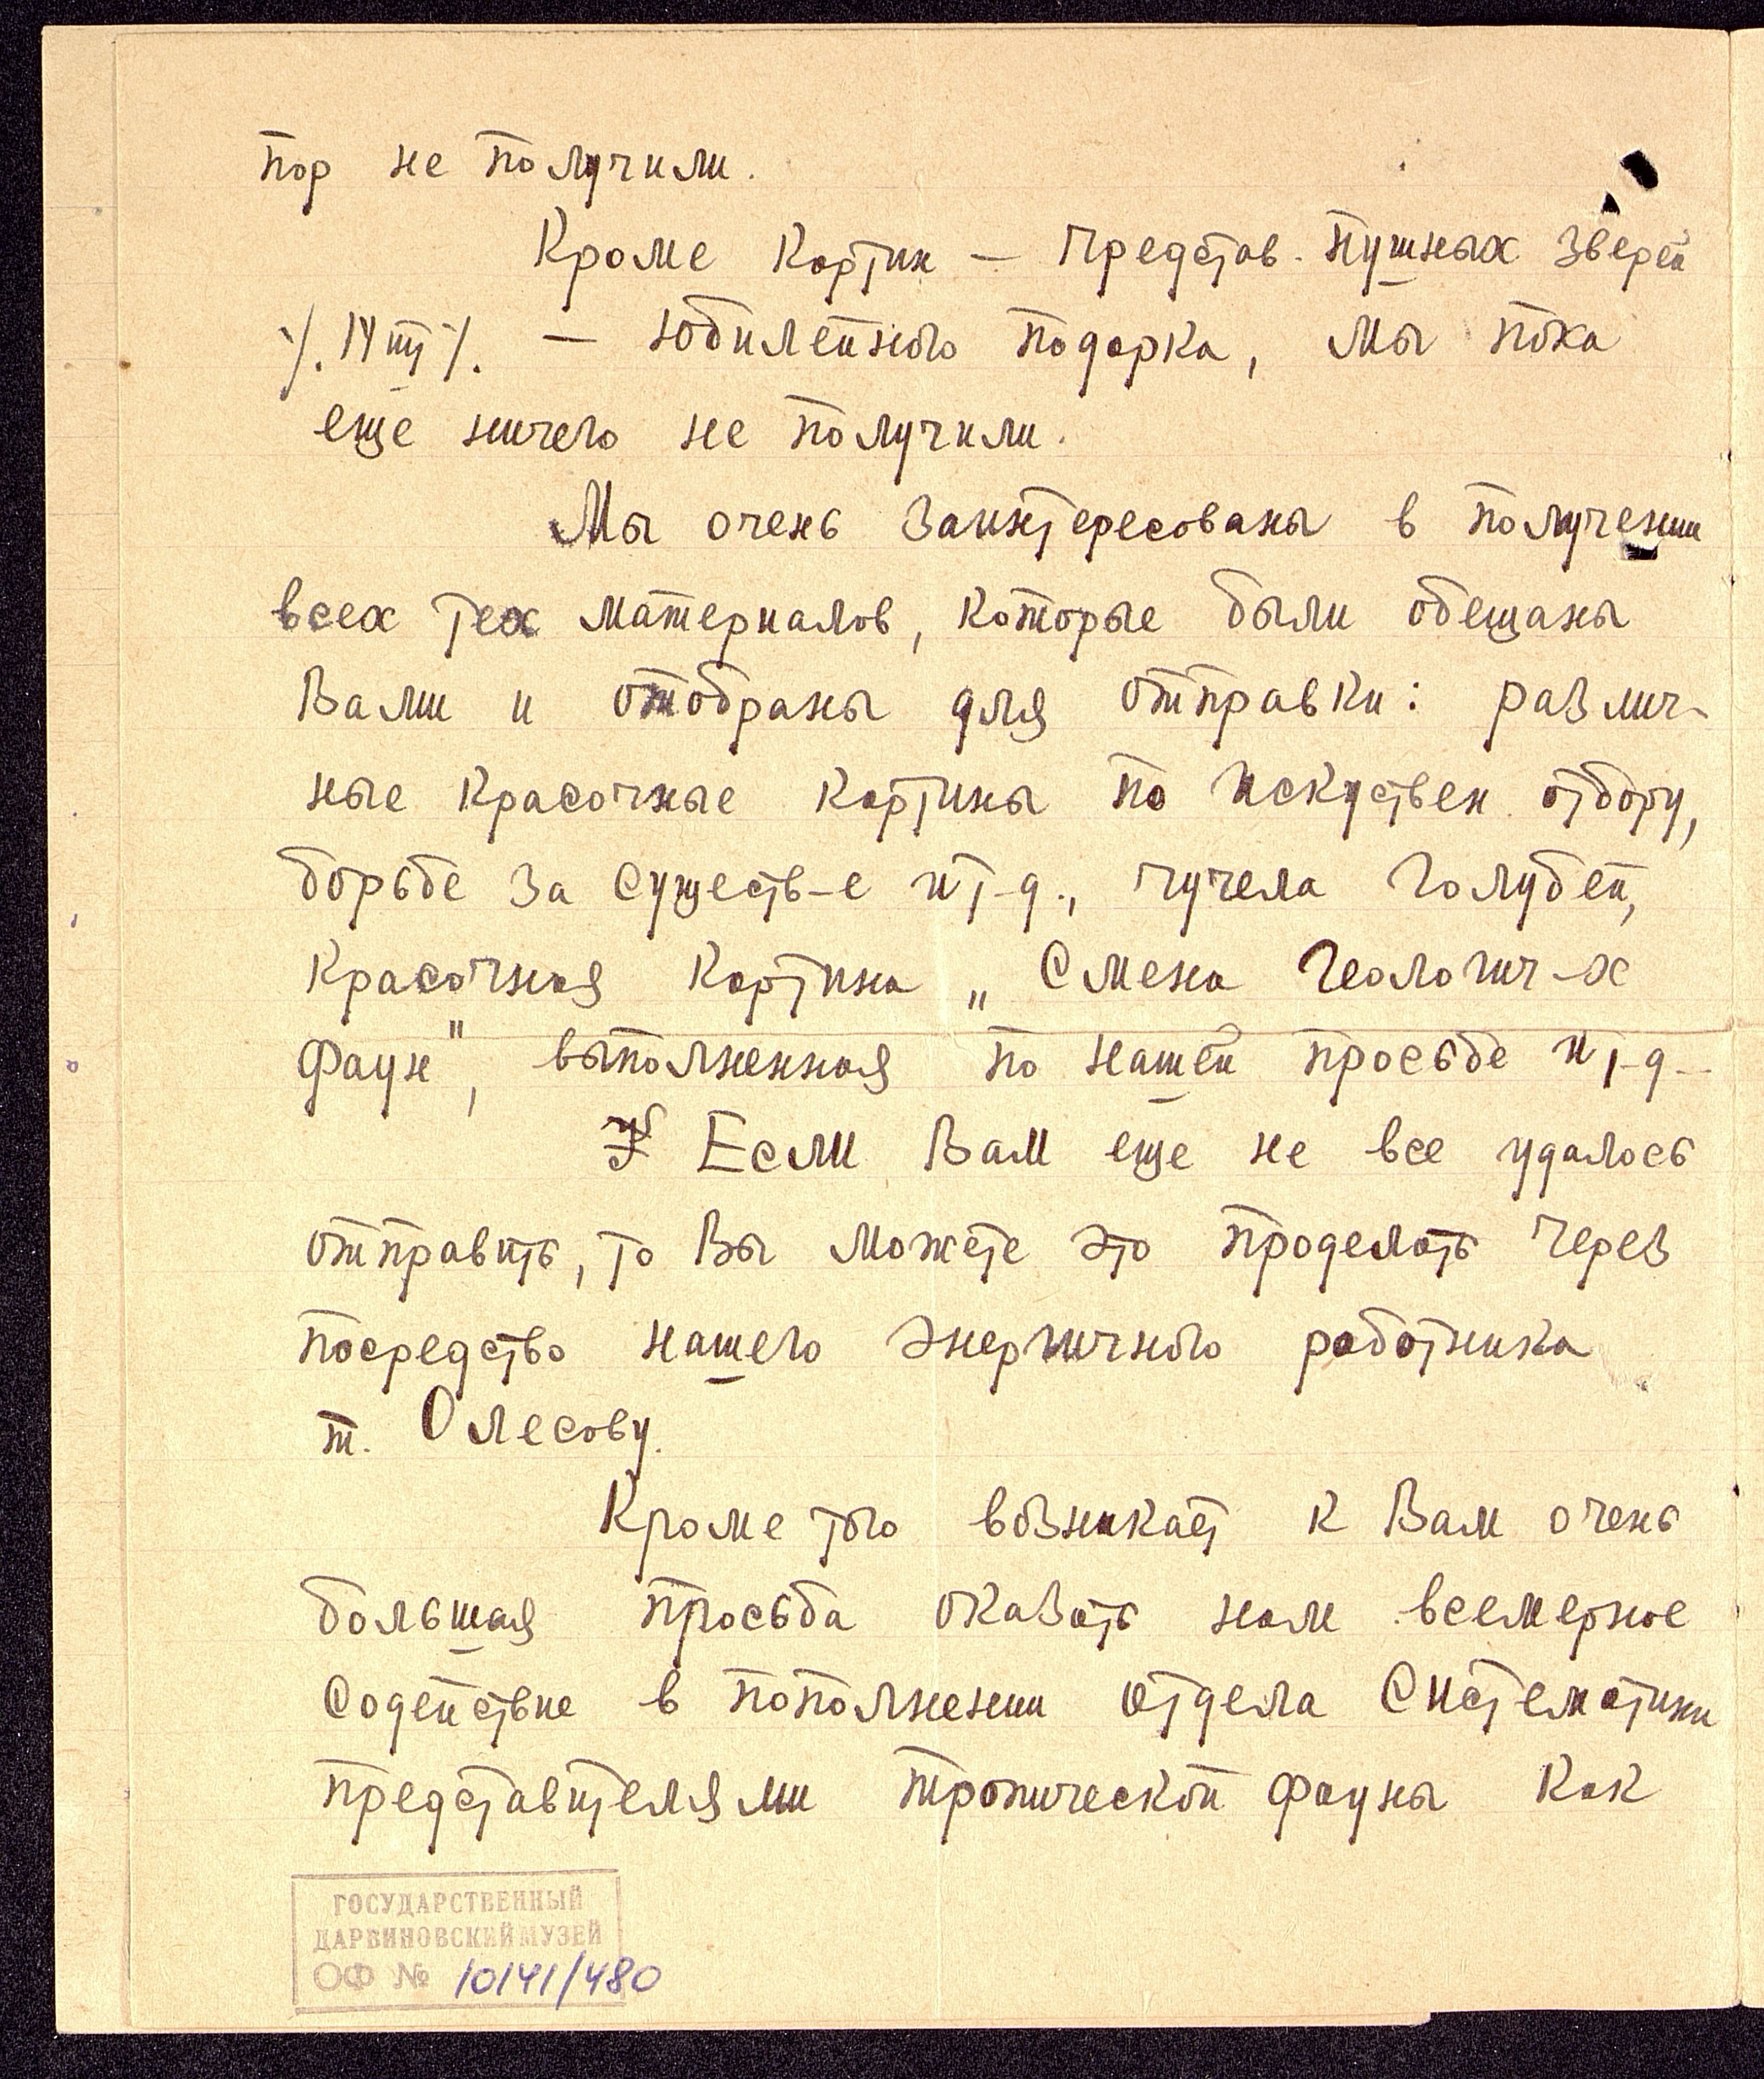 пор не получили.
Кроме картин — представ. пушных зверей
/. 14 шт /. — юбилейного подарка, мы пока
еще ничего не получили.
Мы очень заинтересованы в получении
всех тех материалов, которые были обещаны
Вами и отобраны для отправки: различ-
ные красочные картины по искуствен. отбору,
борьбе за существ-е и т-д., чучела голубей,
красочная картина „Смена геологич-х
фаун", выполненная по нашей просьбе и т-д-
Если Вам еще не все удалось
отправить, то Вы можете это проделать через
посредство нашего энергичного работника
т. Олесову.
Кроме того возникает к Вам очень
большая просьба оказать нам всемерное
содействие в пополнении отдела Систематики
представителями тропической фауны как
ГОСУДАРСТВЕННЫЙ
ДАРВИНОВСКИЙ МУЗЕЙ
ОФ № 10141/480